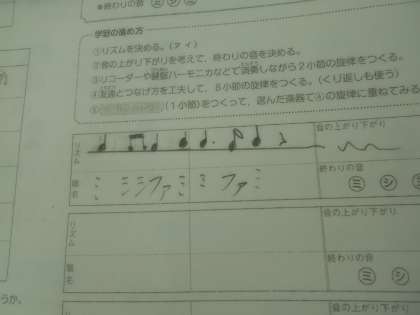 終わりの音 ミ シ ミ
学習の進め方
①リズムを決める。(ア イ)
②音の上がり下がりを考えて、終わりの音を決める。
③リコーダーや鍵盤ハーモニカなどで演奏しながら2小節の旋律をつくる。
④友達とつなげ方を工夫して、8小節の旋律をつくる。(くり返しも使う)
(1小節)をつくって、選んだ楽器で④の旋律に重ねてみる
リズム
音の上がり下がり
階名
ミ ミミファ ミ ミ ファ ミ
終わりの音
ミ シ
リズム
音の上がり下がり
階名
終わりの音
ミ シ
音の上がり下がり
うか。